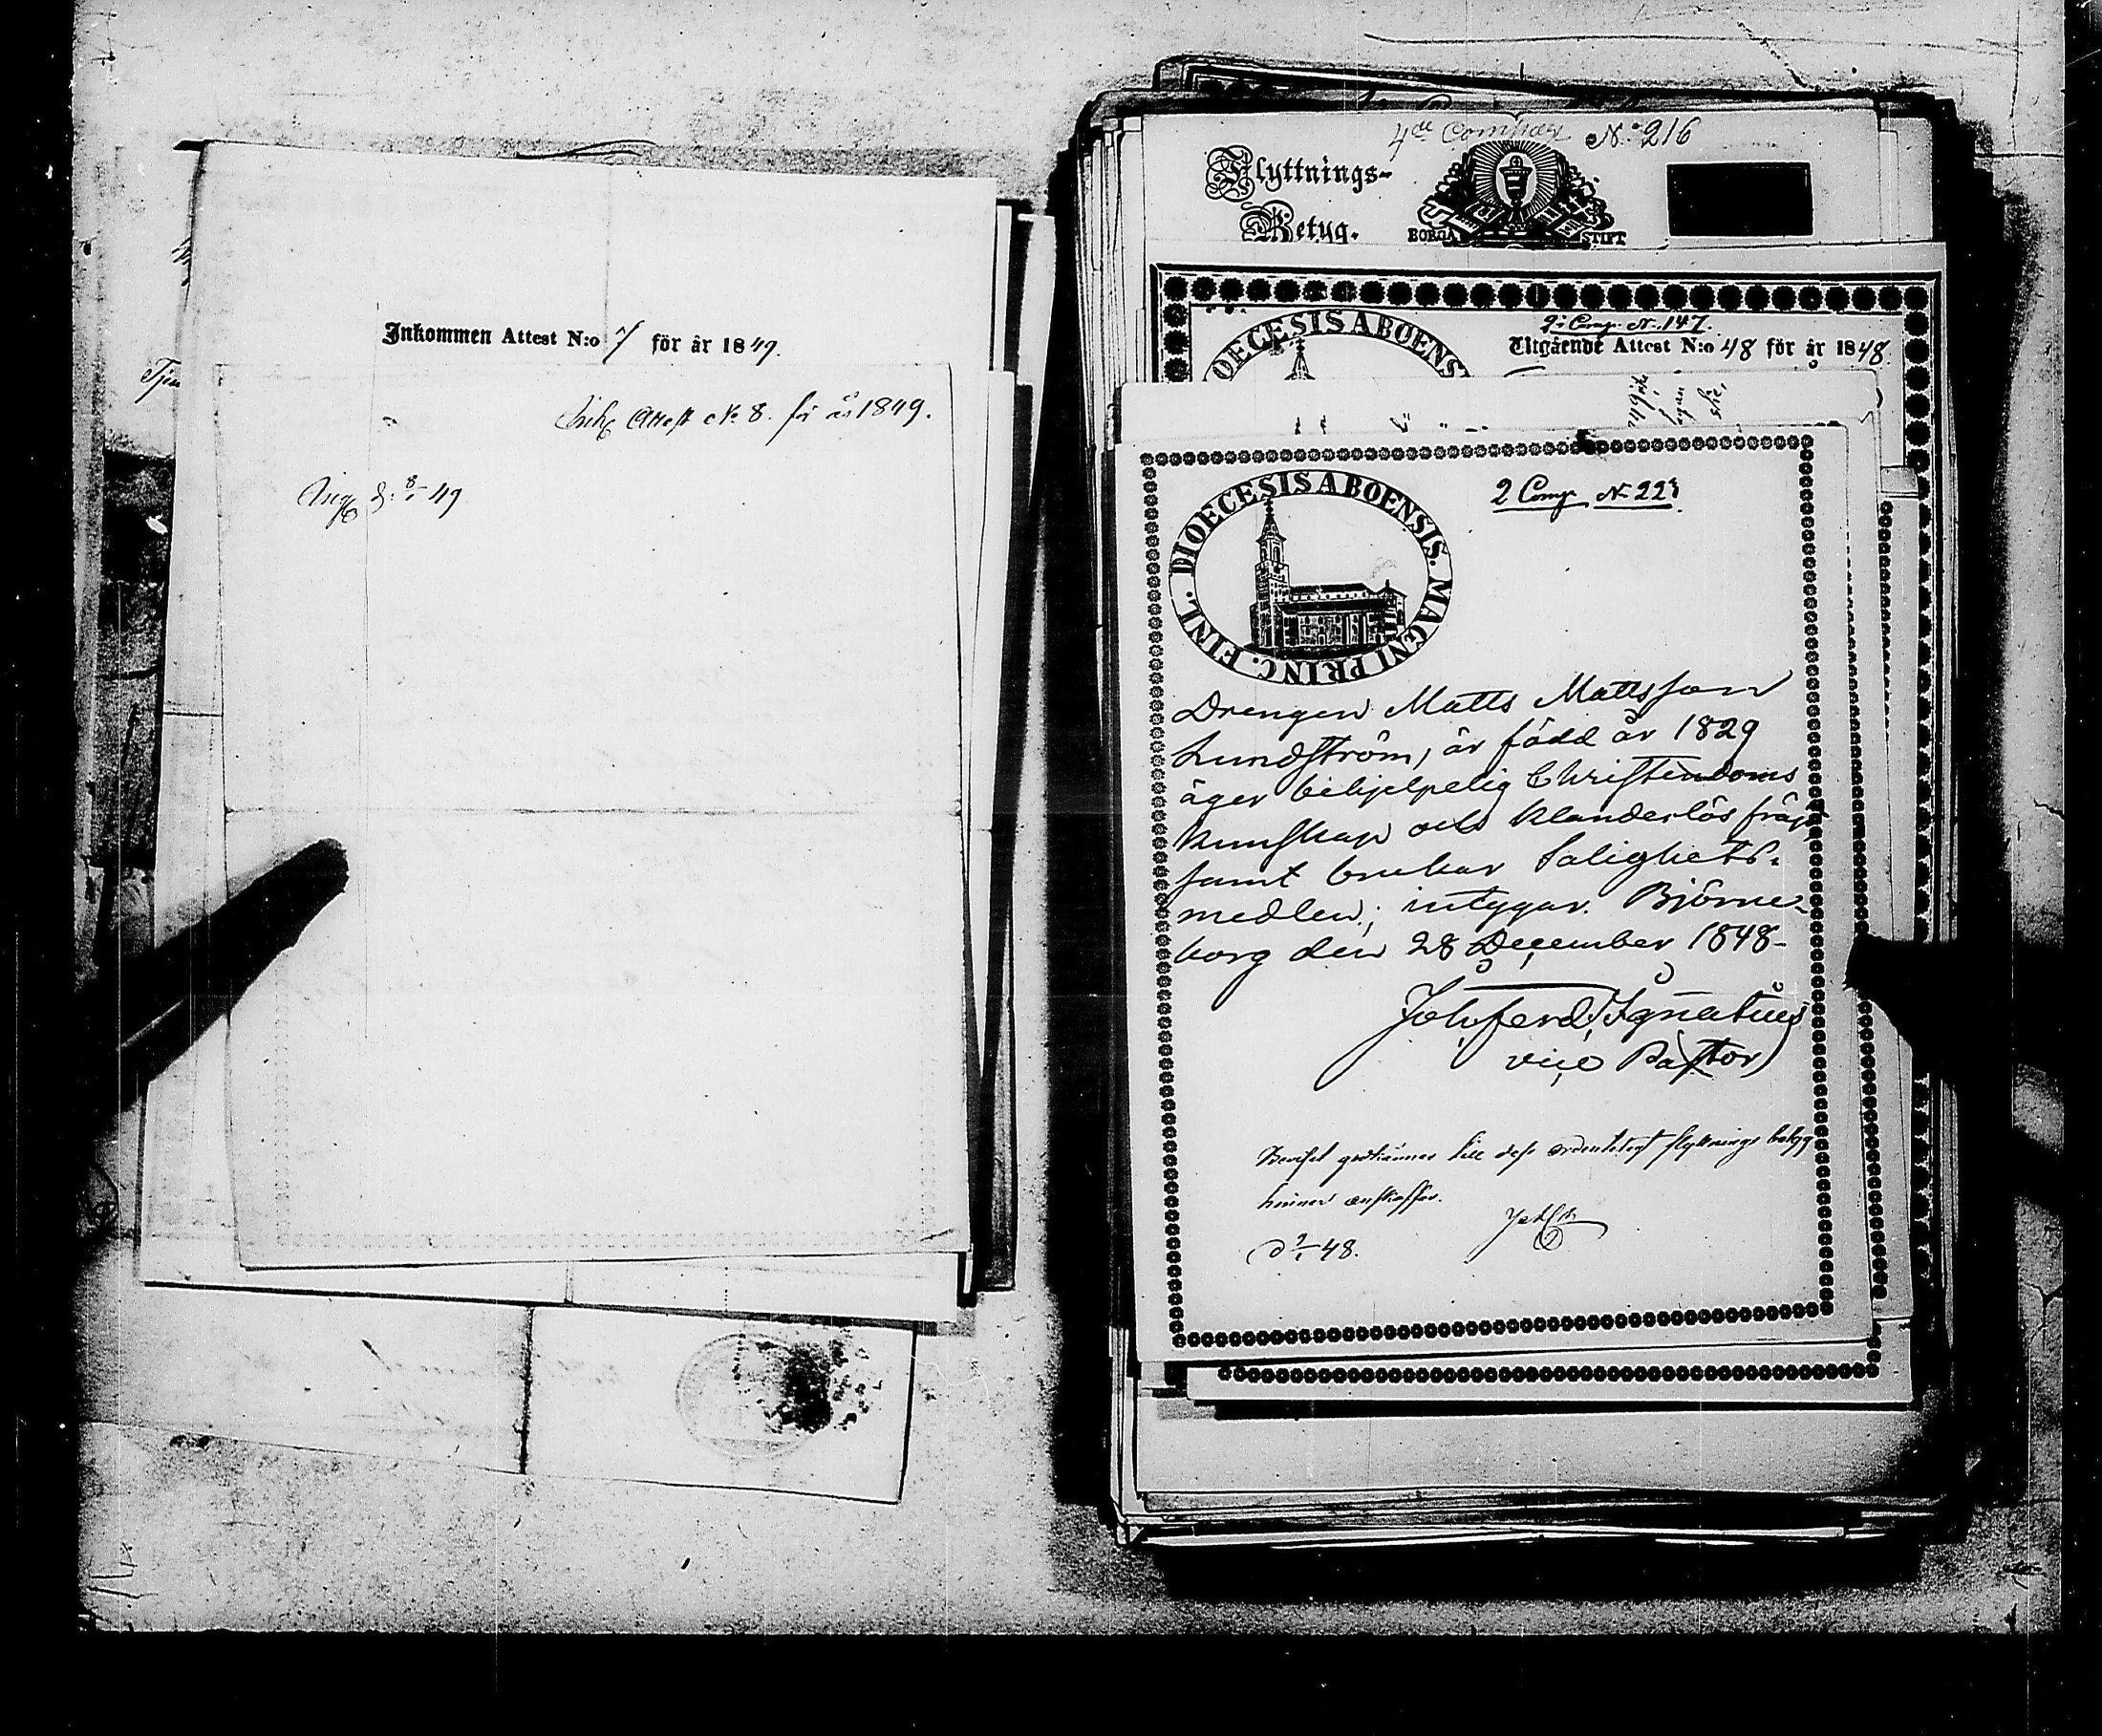 Inkommen Attest N:o 7 för år 1849.
Ink. Attest No 8. för år 1849.
d: 8/1 49
4de Compag. No 216
Flyttnings-
Betyg.
BORGÅ STIFT
2: Comp. N. 147.
Utgående Attest N:o 48 för år 1848.
DIOECESIS ABOENSIS. MAGNI PRINC. FINL.
2 Comp N 223
Drengen Matts Mattsson
Lundström, är född år 1829
äger behjelpelig Christendoms
kunskap och klanderlös fräjd
samt brukar Salighets-
medlen; intygar. Björne-
borg den 28 December 1848-
Joh. Ferd. Ignatius
vice Pastor
Beviset godkännes till dess ordentligt flyttnings betyg
hinner anskaffas.
d 2/1 48.